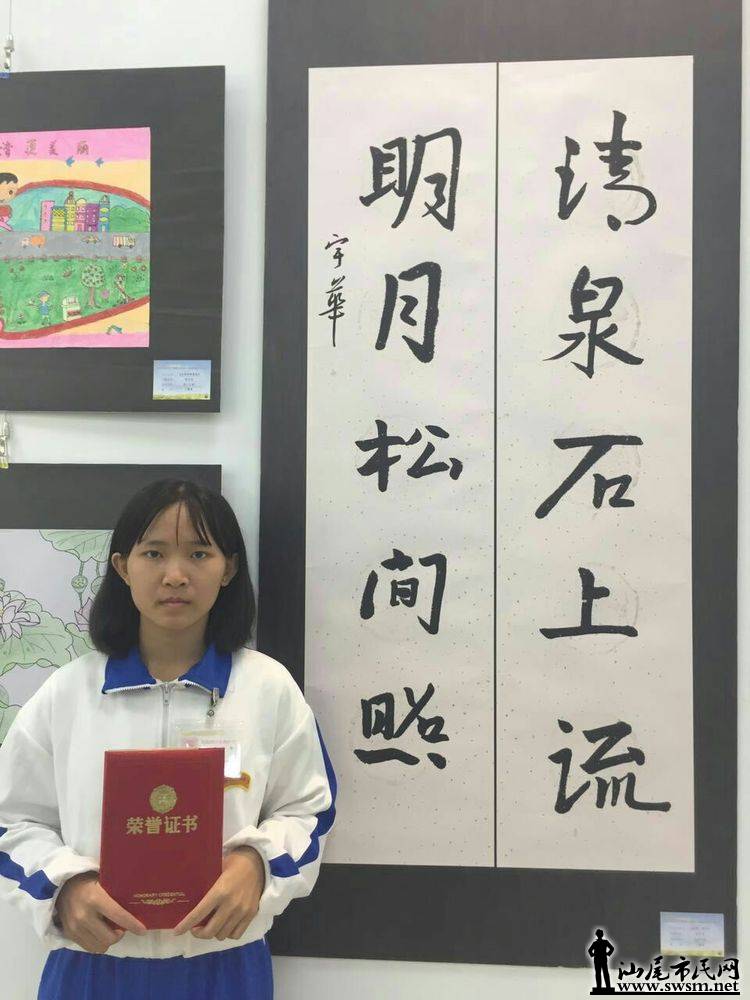 清泉石上流
明月松间照
宇華
美丽
荣誉证书
HONORARY CREDENTIAL
汕尾市民网
www.swsm.net